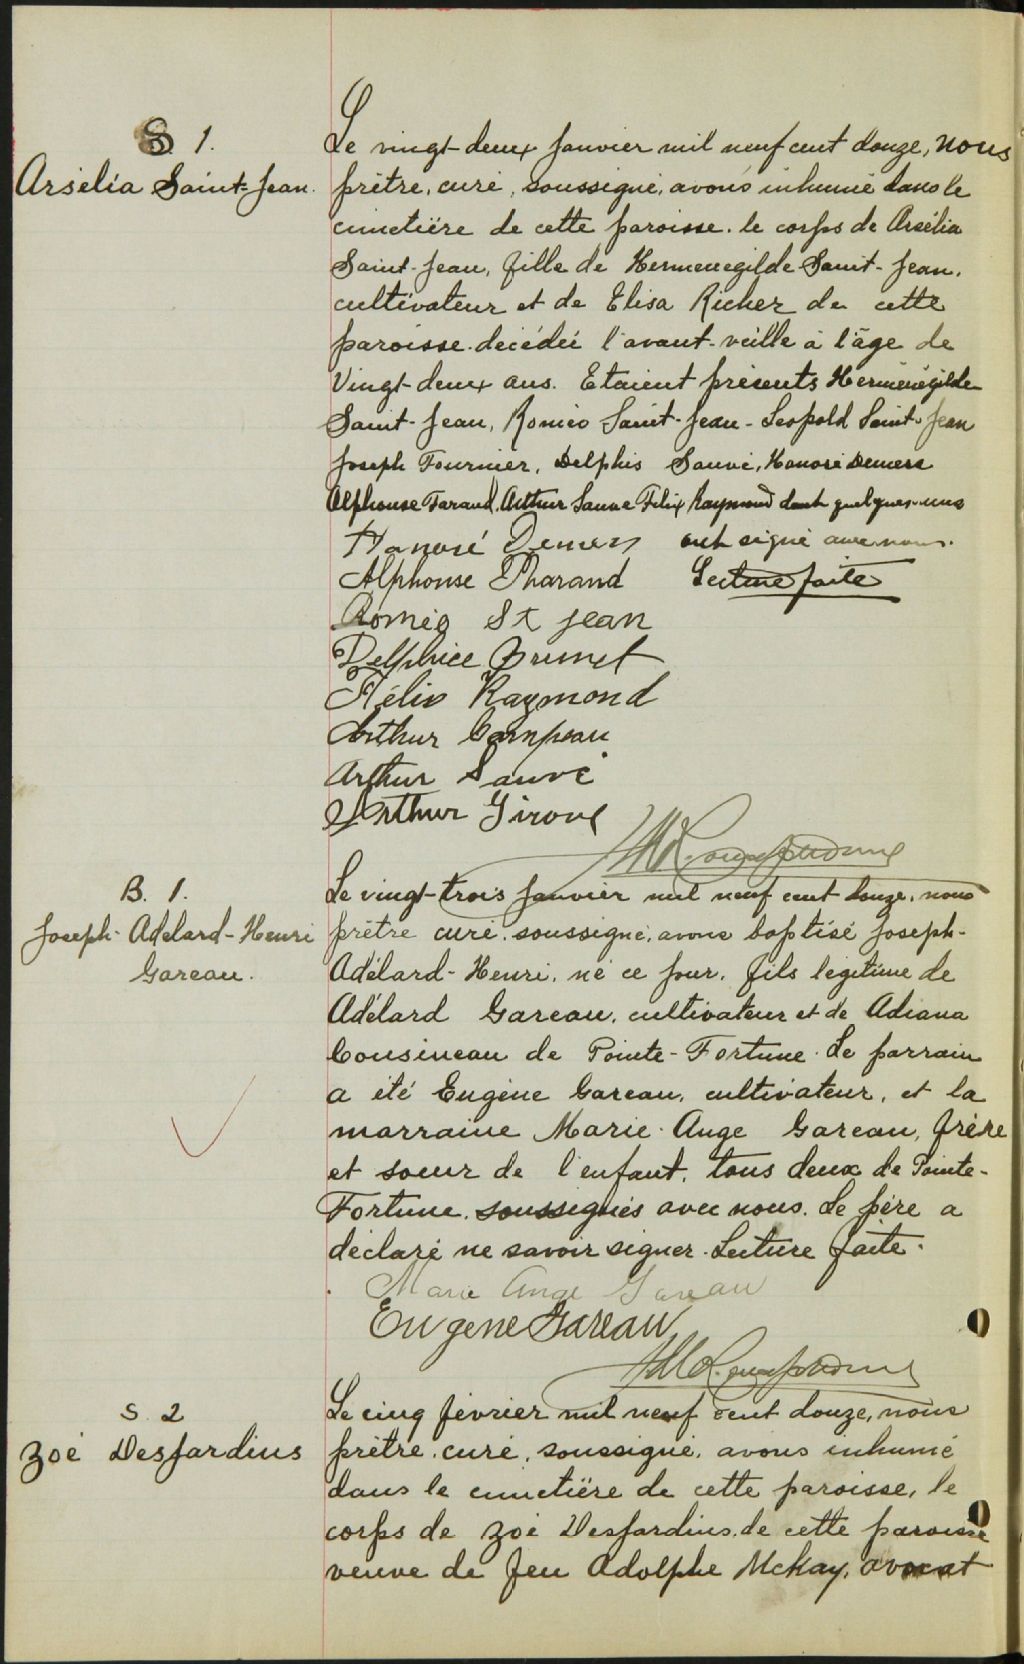 S. 1.
Arsélia Saint-Jean.
Le vingt-deux Janvier mil neuf cent douze, nous
prêtre, curé, soussigné, avons inhumé dans le
cimetière de cette paroisse. le corps de Arsélia
Saint-Jean, fille de Hermenegilde Saint-Jean,
cultivateur et de Elisa Richer de cette
paroisse. décédée l'avant-veille à l'âge de
Vingt-deux ans. Etaient présents Herménégilde
Saint-Jean, Roméo Saint-Jean - Leopold Saint-Jean
Joseph Fournier, Delphis Sauvé, Honoré Demers
Alphonse Farand, Arthur Sauvé Felix Raymond dont quelques-uns
Honoré Demers ont signé avec nous.
Alphonse Pharand Lecture faite
Roméo St Jean
Delphice Brunet
Félix Raymond
Arthur Campeau
Arthur Sauvé
Arthur Giroux
B. 1.
Joseph-Adelard-Henri
Gareau.
Le vingt-trois Janvier mil neuf cent douze, nous
prêtre curé, soussigné, avons baptisé Joseph-
Adélard-Henri, né ce jour, fils légitime de
Adélard Gareau, cultivateur et de Adiana
Cousineau de Pointe-Fortune. Le parrain
a été Eugène Gareau, cultivateur, et la
marraine Marie-Ange Gareau, frère
et soeur de l'enfant, tous deux de Pointe-
Fortune, soussignés avec nous. Le père a
déclaré ne savoir signer. Lecture faite.
Marie Ange Gareau
Eugene Gareau
S. 2
Zoé DesJardins
Le cinq février mil neuf cent douze, nous
prêtre, curé, soussigné, avons inhumé
dans le cimetière de cette paroisse, le
corps de Zoé DesJardins, de cette paroisse
veuve de feu Adolphe McKay, avocat